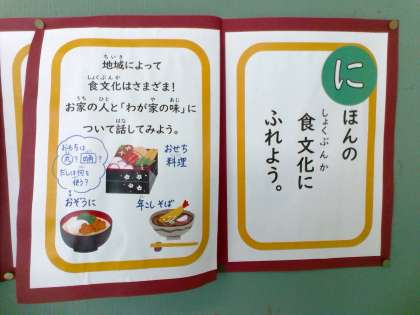 地域によって
ちいき
食文化はさまざま！
しょくぶんか
お家の人と「わが家の味」に
うち ひと や あじ
ついて話してみよう。
はな
おもちは
丸？角？
だしは何を
使う？
おせち
料理
おぞうに
年こしそば
に
ほんの
食文化に
しょくぶんか
ふれよう。